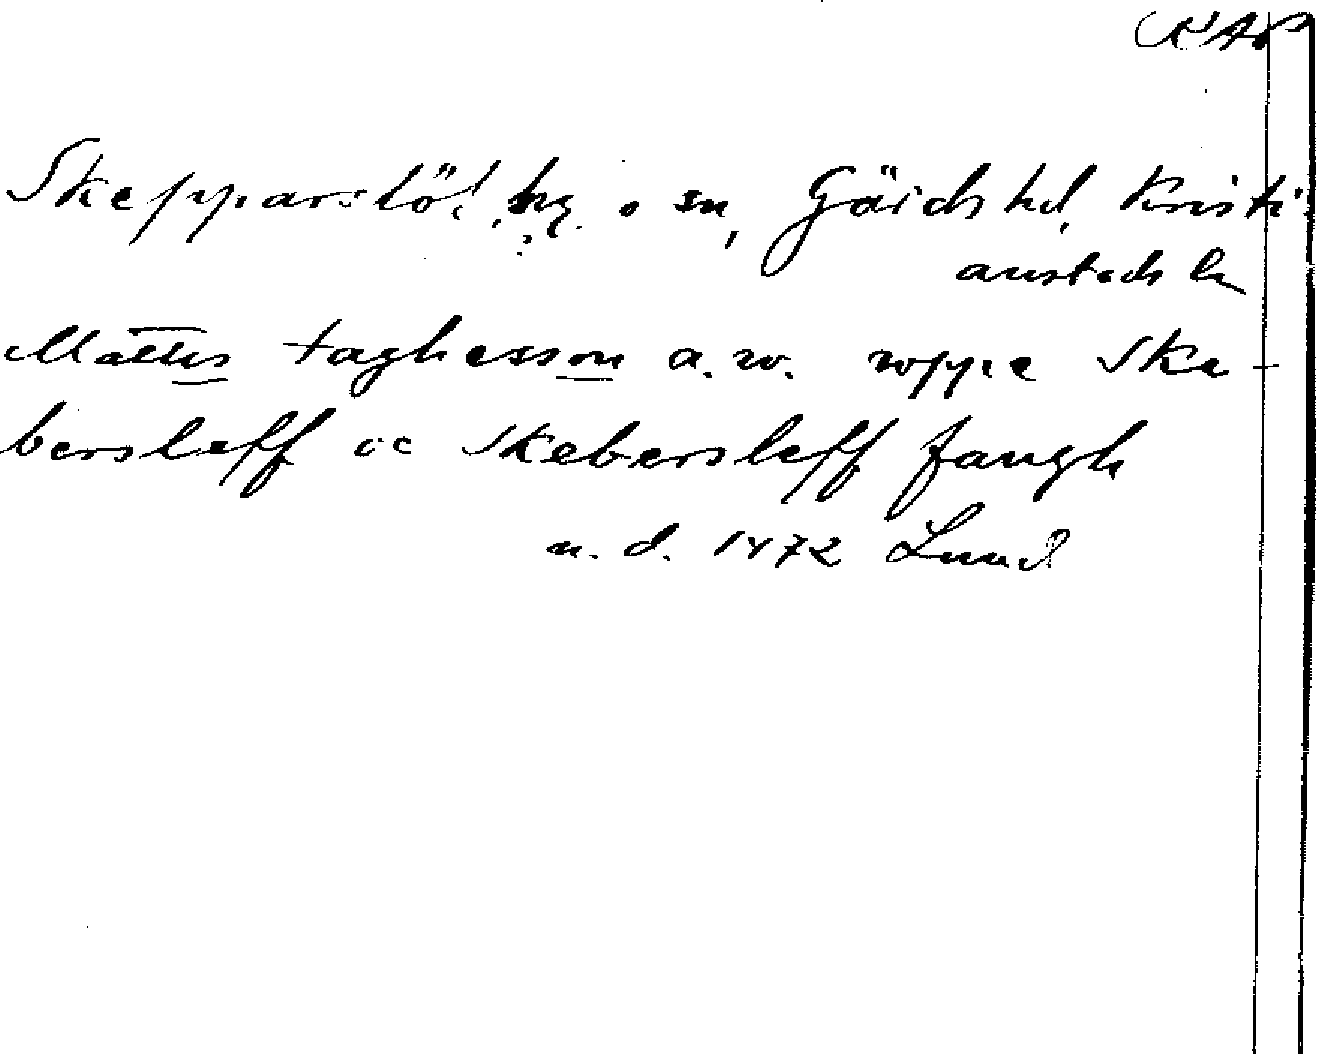 Skepparslöv, by o sn, Gärds hd, Kristi-
anstads l.
Mattis taghesson a. w. wppe Ske-
bersleff oc skebersleff fangh
u. d. 1472 Lund